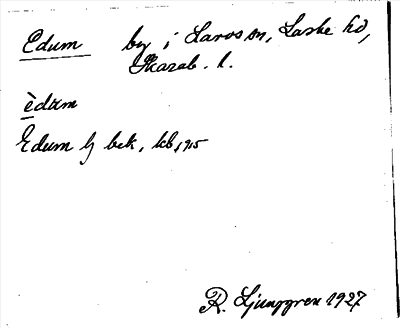 Edum by i Larvs sn, Laske hd,
Skarab. l.
èdum
Edum by bek, kb 1915
R. Ljunggren 1927